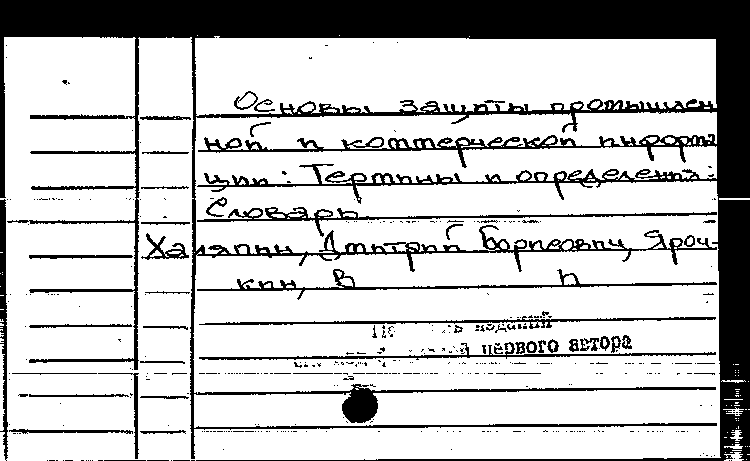 Основы защиты промышлен
ной и коммерческой информа
ции: Термины и определения:
Словарь.
Халяпин, Дмитрий Борисович, Яроч-
кин, В И
изданий
первого автора